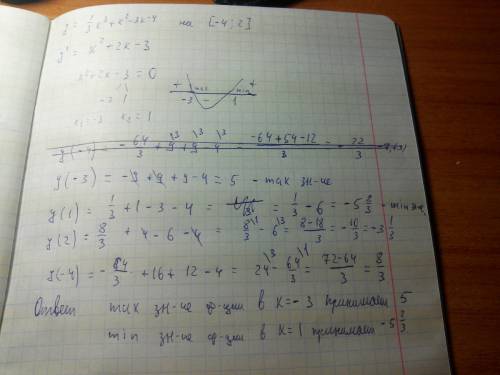 y = 1/3 x³ + x² - 3x - 4 на [-4; 2]
y' = x² + 2x - 3
x² + 2x - 3 = 0
+ max - min +
-3 1
-3 1
x₁ = -3 x₂ = 1
y(-3) = -9 + 9 + 9 - 4 = 5 - max зн-ие
y(1) = 1/3 + 1 - 3 - 4 = 1/3 - 6 = -5 2/3 - min зн.
y(2) = 8/3 + 4 - 6 - 4 = 8/3 - 6 = 8-18/3 = -10/3 = -3 1/3
y(-4) = -64/3 + 16 + 12 - 4 = 24 - 64/3 = 72-64/3 = 8/3
Ответ max зн-ие ф-ции в x = -3 принимает 5
min зн-ие ф-ции в x = 1 принимает -5 2/3